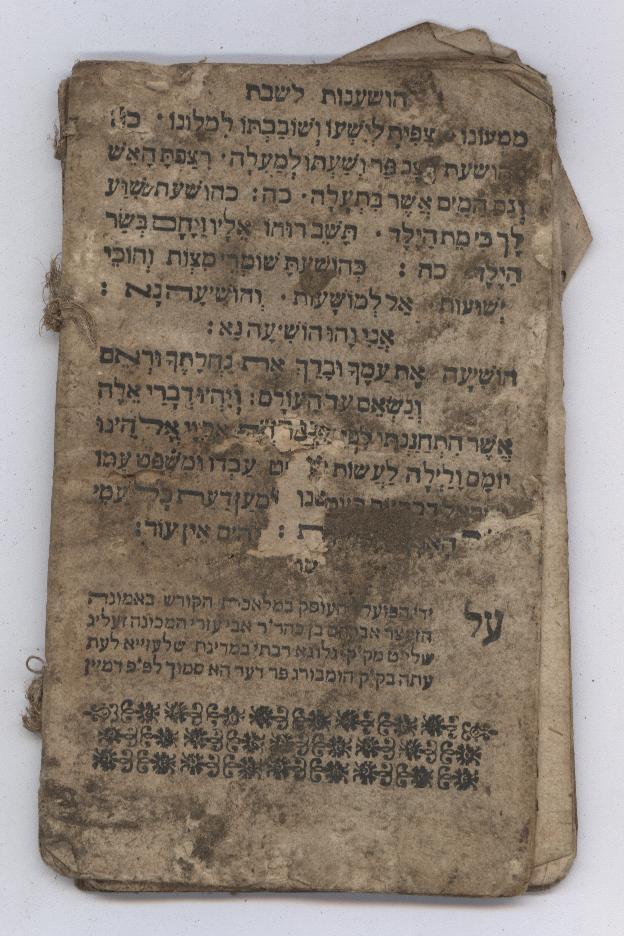 הושענות לשבת
ממעונו · צפית לישעו ושובבתו למלונו ·
הושעת קצב פר ושעתו למעלה · רצפת האש
המים אשר בתעלה · כה : כהושעת שוע
לך כי מת הילד · תשב רוחו אליו ויחם בשר
הילד כה : כהושעת שומרי מצות והוכי
ישועות · אל למושעות · והושיעה נא :
אני והו הושיעה נא :
הושיעה את עמך וברך את נחלתך ורעם
ונשאם עד העולם : ויהיו דברי אלה
אשר התחננתי לפני אל הינו
יומם ולילה לעשות עבדו ומשפט עמו
דבר יום למען דעת כל עמי
אין עוד :
על
ידי הפועל העוסק במלאכת הקודש באמונה
אברהם בן כהר״ר אבי עזרי המכונה זעליג
של״ט מק״ק גלוגא רבתי במדינת שלעזייא לעת
עתה בק״ק הומבורג פר דער הא סמוך לפ״פ דמיין